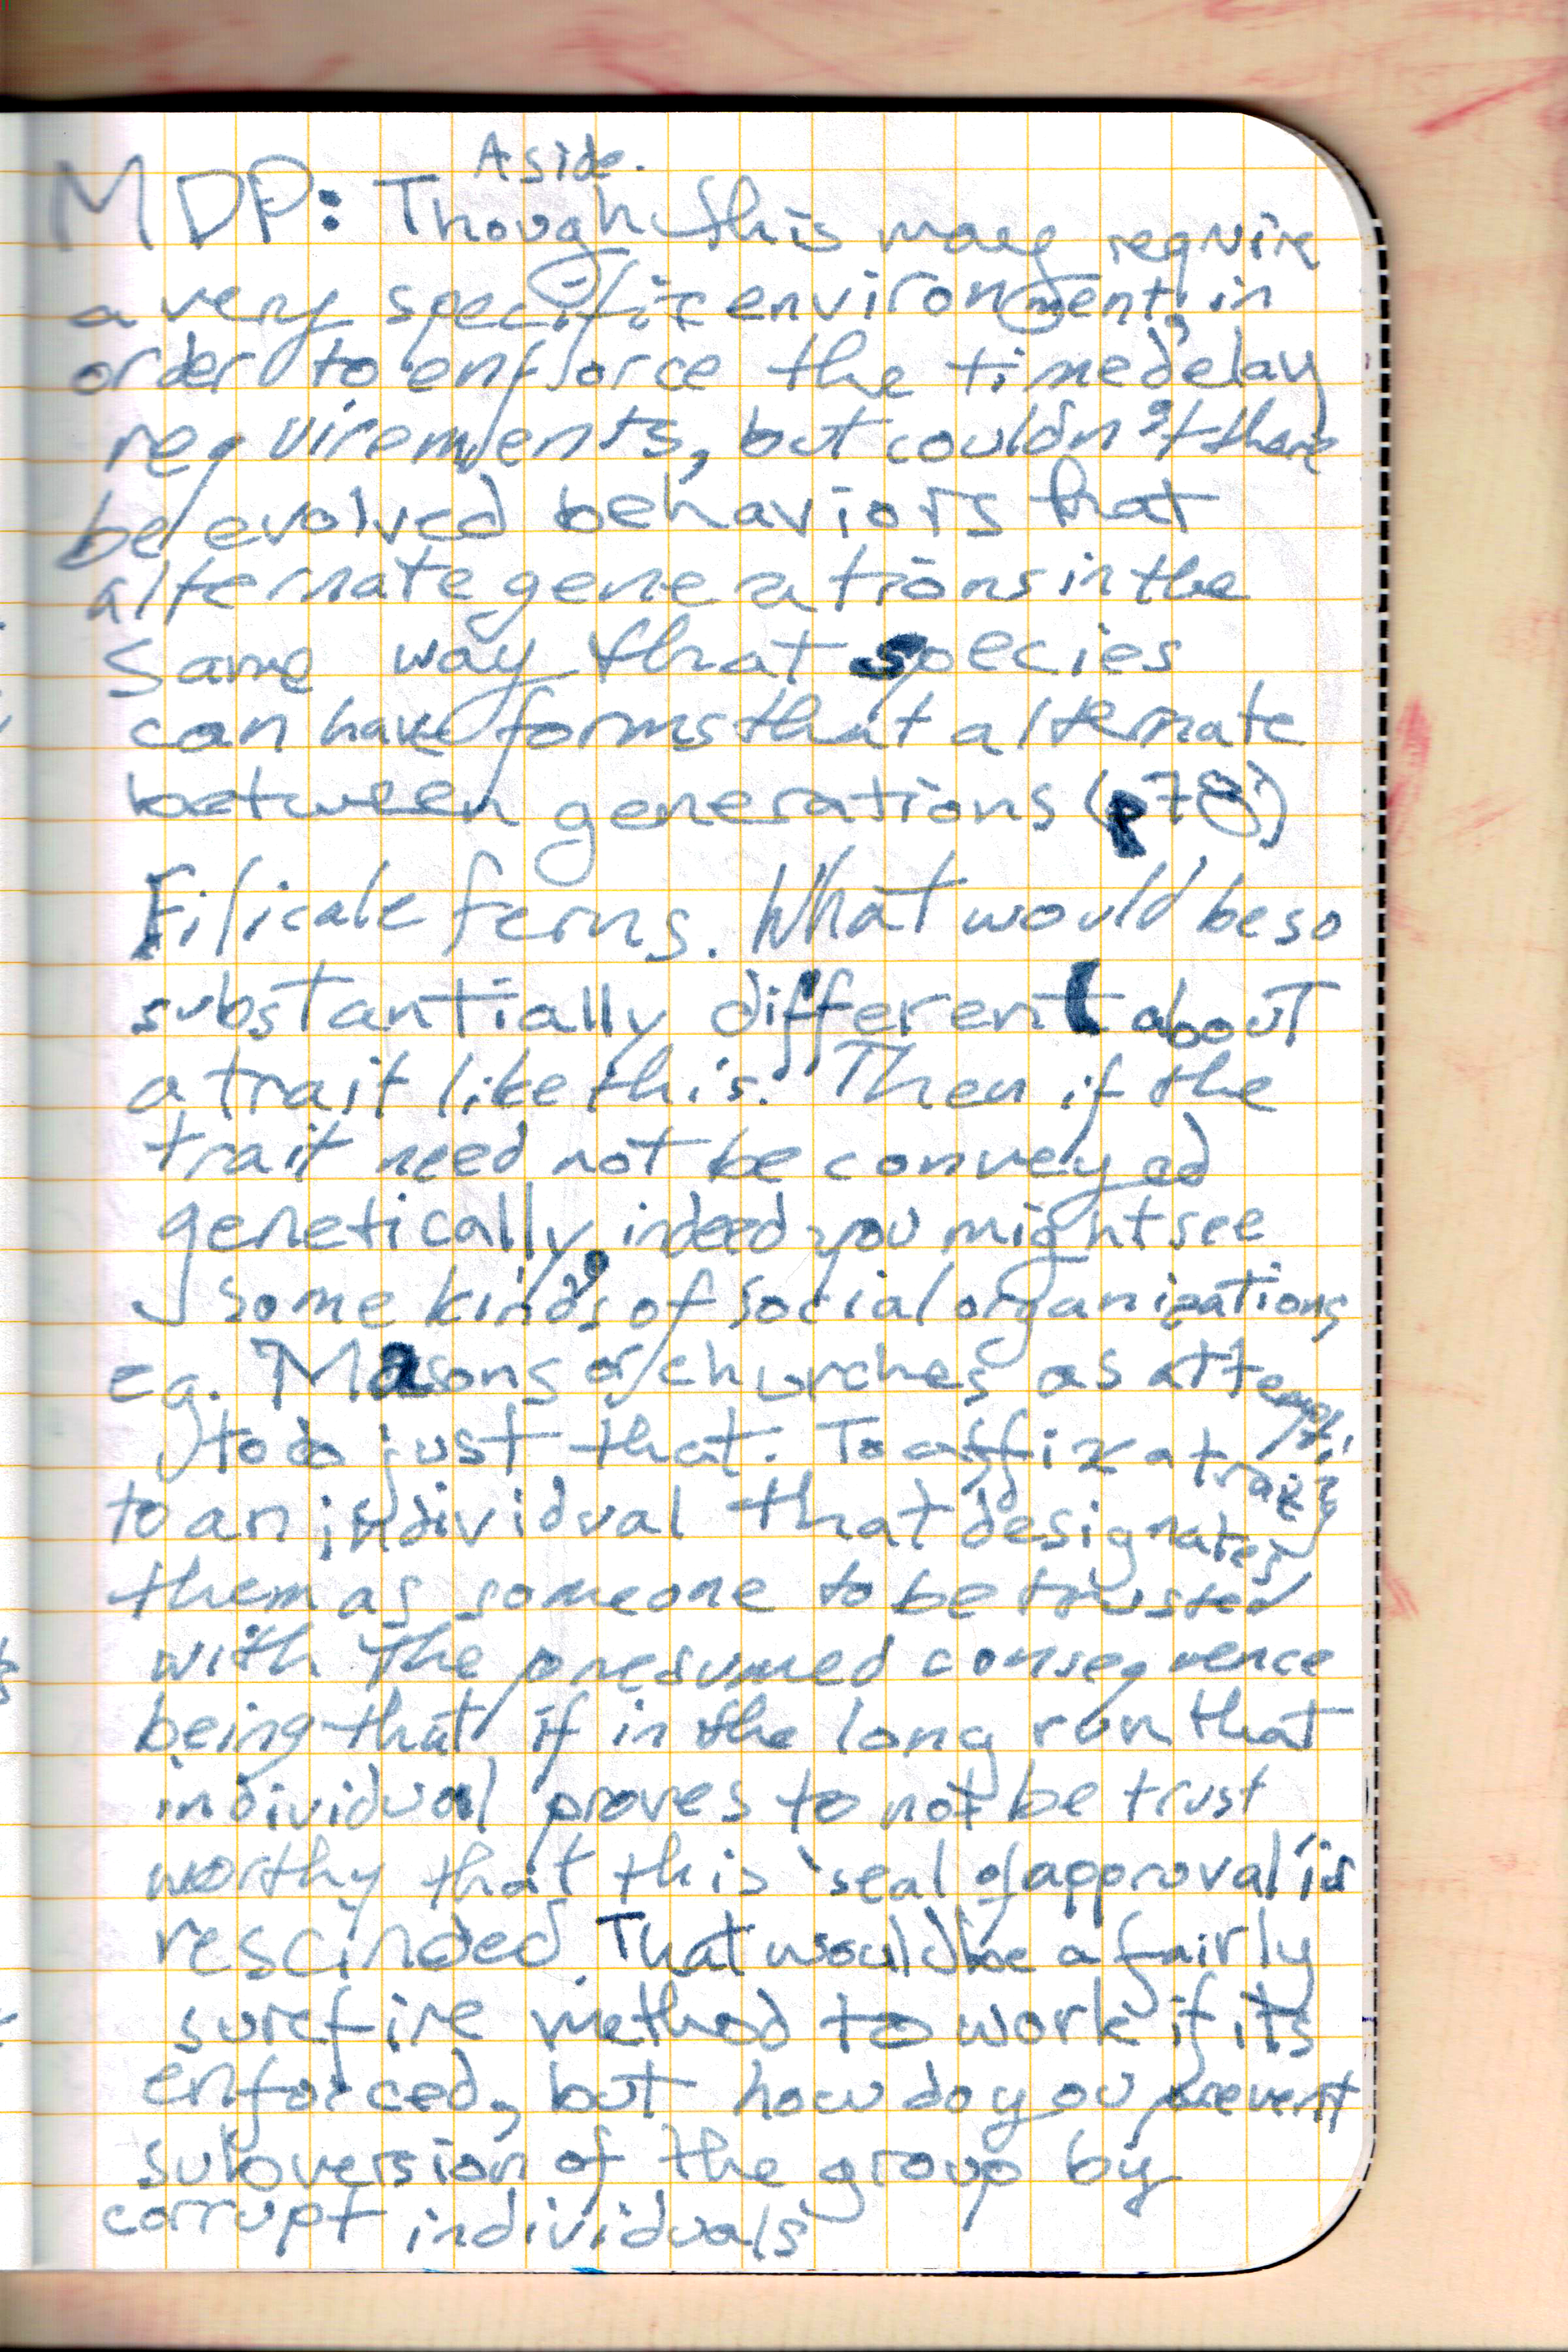 Aside.
MDP: Though this may require
a very specific environment, in
order to enforce the time delay
requirements, but couldn't there
be evolved behaviors that
alternate generations in the
same way that species
can have forms that alternate
between generations (p78)
Filicale ferns. What would be so
substantially different about
a trait like this. Then if the
trait need not be conveyed
genetically, indeed you might see
some kinds of social organizations
eg. Masons or churches as attempts
to do just that. To affix a trait
to an individual that designates
them as someone to be trusted
with the presumed consequence
being that if in the long run that
individual proves to not be trust
worthy that this 'seal of approval' is
rescinded. That would be a fairly
surefire method to work if its
enforced, but how do you prevent
subversion of the group by
corrupt individuals